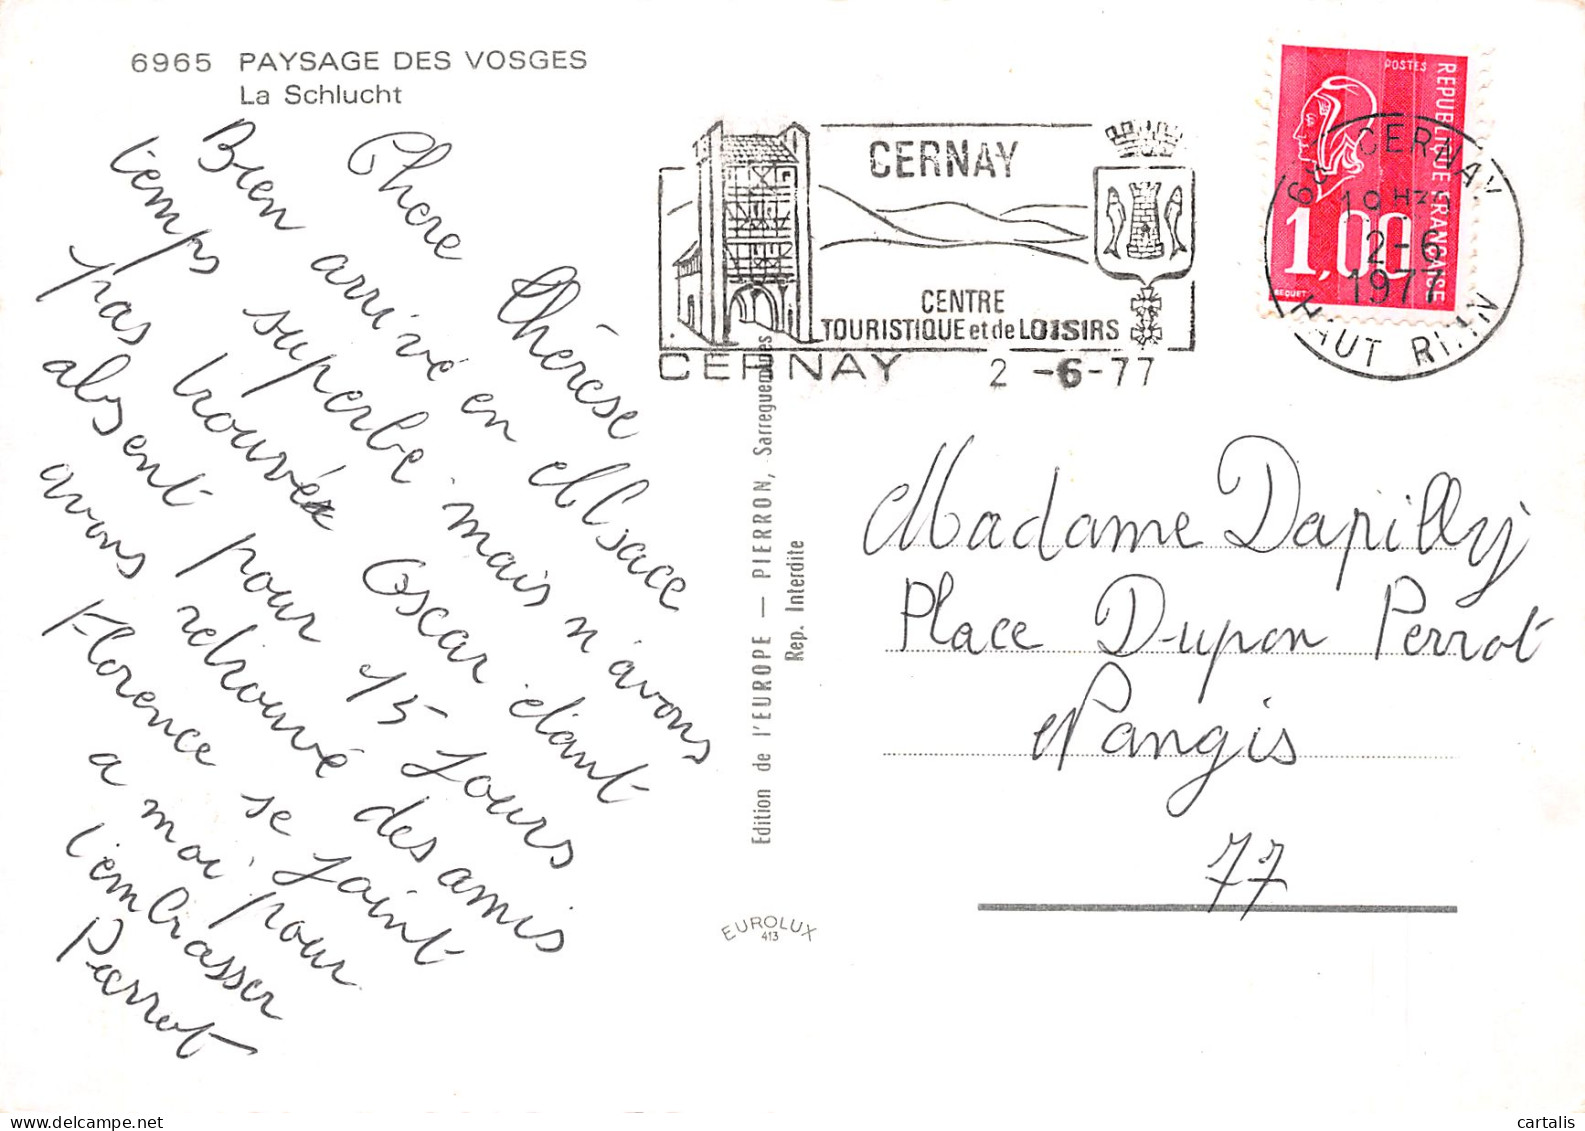 6965 PAYSAGE DES VOSGES
La Schlucht
Chere thérèse
Bien arrivé en Alsace
temps superbe mais n'avons
pas trouvé Oscar étant
absent pour 15 Jours
avons retrouvé des amis
Florence se Joint
a moi pour
t'embrasser
Pierrot
Edition de l'EUROPE — PIERRON, Sarreguemines
Rep. Interdite
EUROLUX
413
CERNAY
CENTRE
TOURISTIQUE et de LOISIRS
CERNAY 2 -6-77
POSTES
REPUBLIQUE FRANCAISE
1,00
BEQUET
68 CERNAY
19H
2-6
1977
HAUT RHIN
Madame Dapilly
Place Dupon Perrot
Nangis
77
cartalis